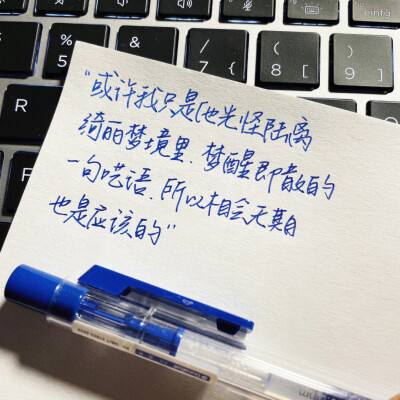 %
5
&
7
{
[
*
8
(
}
9
]
R
T
"或许我只是他光怪陆离
绮丽梦境里.梦醒即散的
一句呓语.所以相会无期
也是应该的"